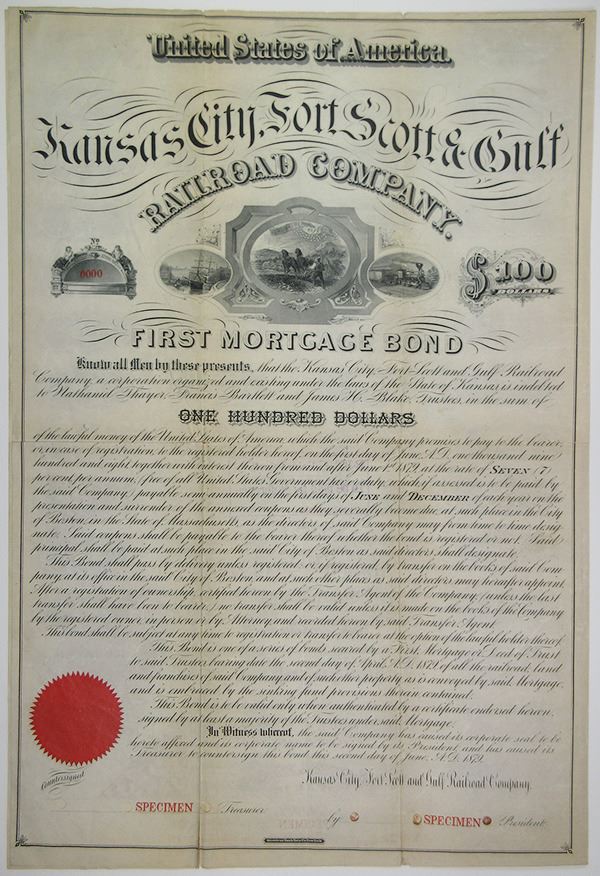 United States of America.
Kansas City, Fort Scott & Gulf
RAILROAD COMPANY.
No
0000
$100
DOLLARS
FIRST MORTGAGE BOND
Know all Men by these presents, that the Kansas City, Fort Scott and Gulf Railroad
Company, a corporation organized and existing under the laws of the State of Kansas, is indebted
to Nathaniel Thayer, Francis Bartlett and James H. Blake, Trustees, in the sum of
ONE HUNDRED DOLLARS
of the lawful money of the United States of America, which the said Company promises to pay to the bearer,
or in case of registration, to the registered holder hereof, on the first day of June, A.D. one thousand nine
hundred and eight, together with interest thereon from and after June 1st 1879, at the rate of SEVEN (7)
per cent per annum, (free of all United States Government tax or duty, which if assessed is to be paid by
the said Company,) payable semi annually on the first days of JUNE and DECEMBER of each year on the
presentation and surrender of the annexed coupons as they severally become due, at such place in the City
of Boston, in the State of Massachusetts, as the directors of said Company may from time to time desig-
nate. Said coupons shall be payable to the bearer thereof whether the bond is registered or not. Said
principal shall be paid at such place in the said City of Boston as said directors shall designate.
This Bond shall pass by delivery unless registered, or if registered, by transfer on the books of said Com-
pany, at its office in the said City of Boston, and at such other places as said directors may hereafter appoint.
After a registration of ownership, certified hereon by the Transfer Agent of the Company, (unless the last
transfer shall have been to bearer,) no transfer shall be valid unless it is made on the books of the Company
by the registered owner, in person or by Attorney and recorded hereon by said Transfer Agent.
This bond shall be subject at any time to registration or transfer to bearer, at the option of the lawful holder thereof.
This Bond is one of a series of bonds secured by a First Mortgage or Deed of Trust
to said Trustees bearing date the second day of April, A.D. 1879, of all the railroad, land
and franchises of said Company and of such other property as is conveyed by said Mortgage,
and is embraced by the sinking fund provisions therein contained.
This Bond is to be valid only when authenticated by a certificate endorsed hereon,
signed by at least a majority of the Trustees under said Mortgage.
In Witness whereof, the said Company has caused its corporate seal to be
hereto affixed and its corporate name to be signed by its President, and has caused its
Treasurer to countersign this bond this second day of June, A.D. 1879.
Kansas City, Fort Scott and Gulf Railroad Company,
Countersigned
SPECIMEN Treasurer
by SPECIMEN President